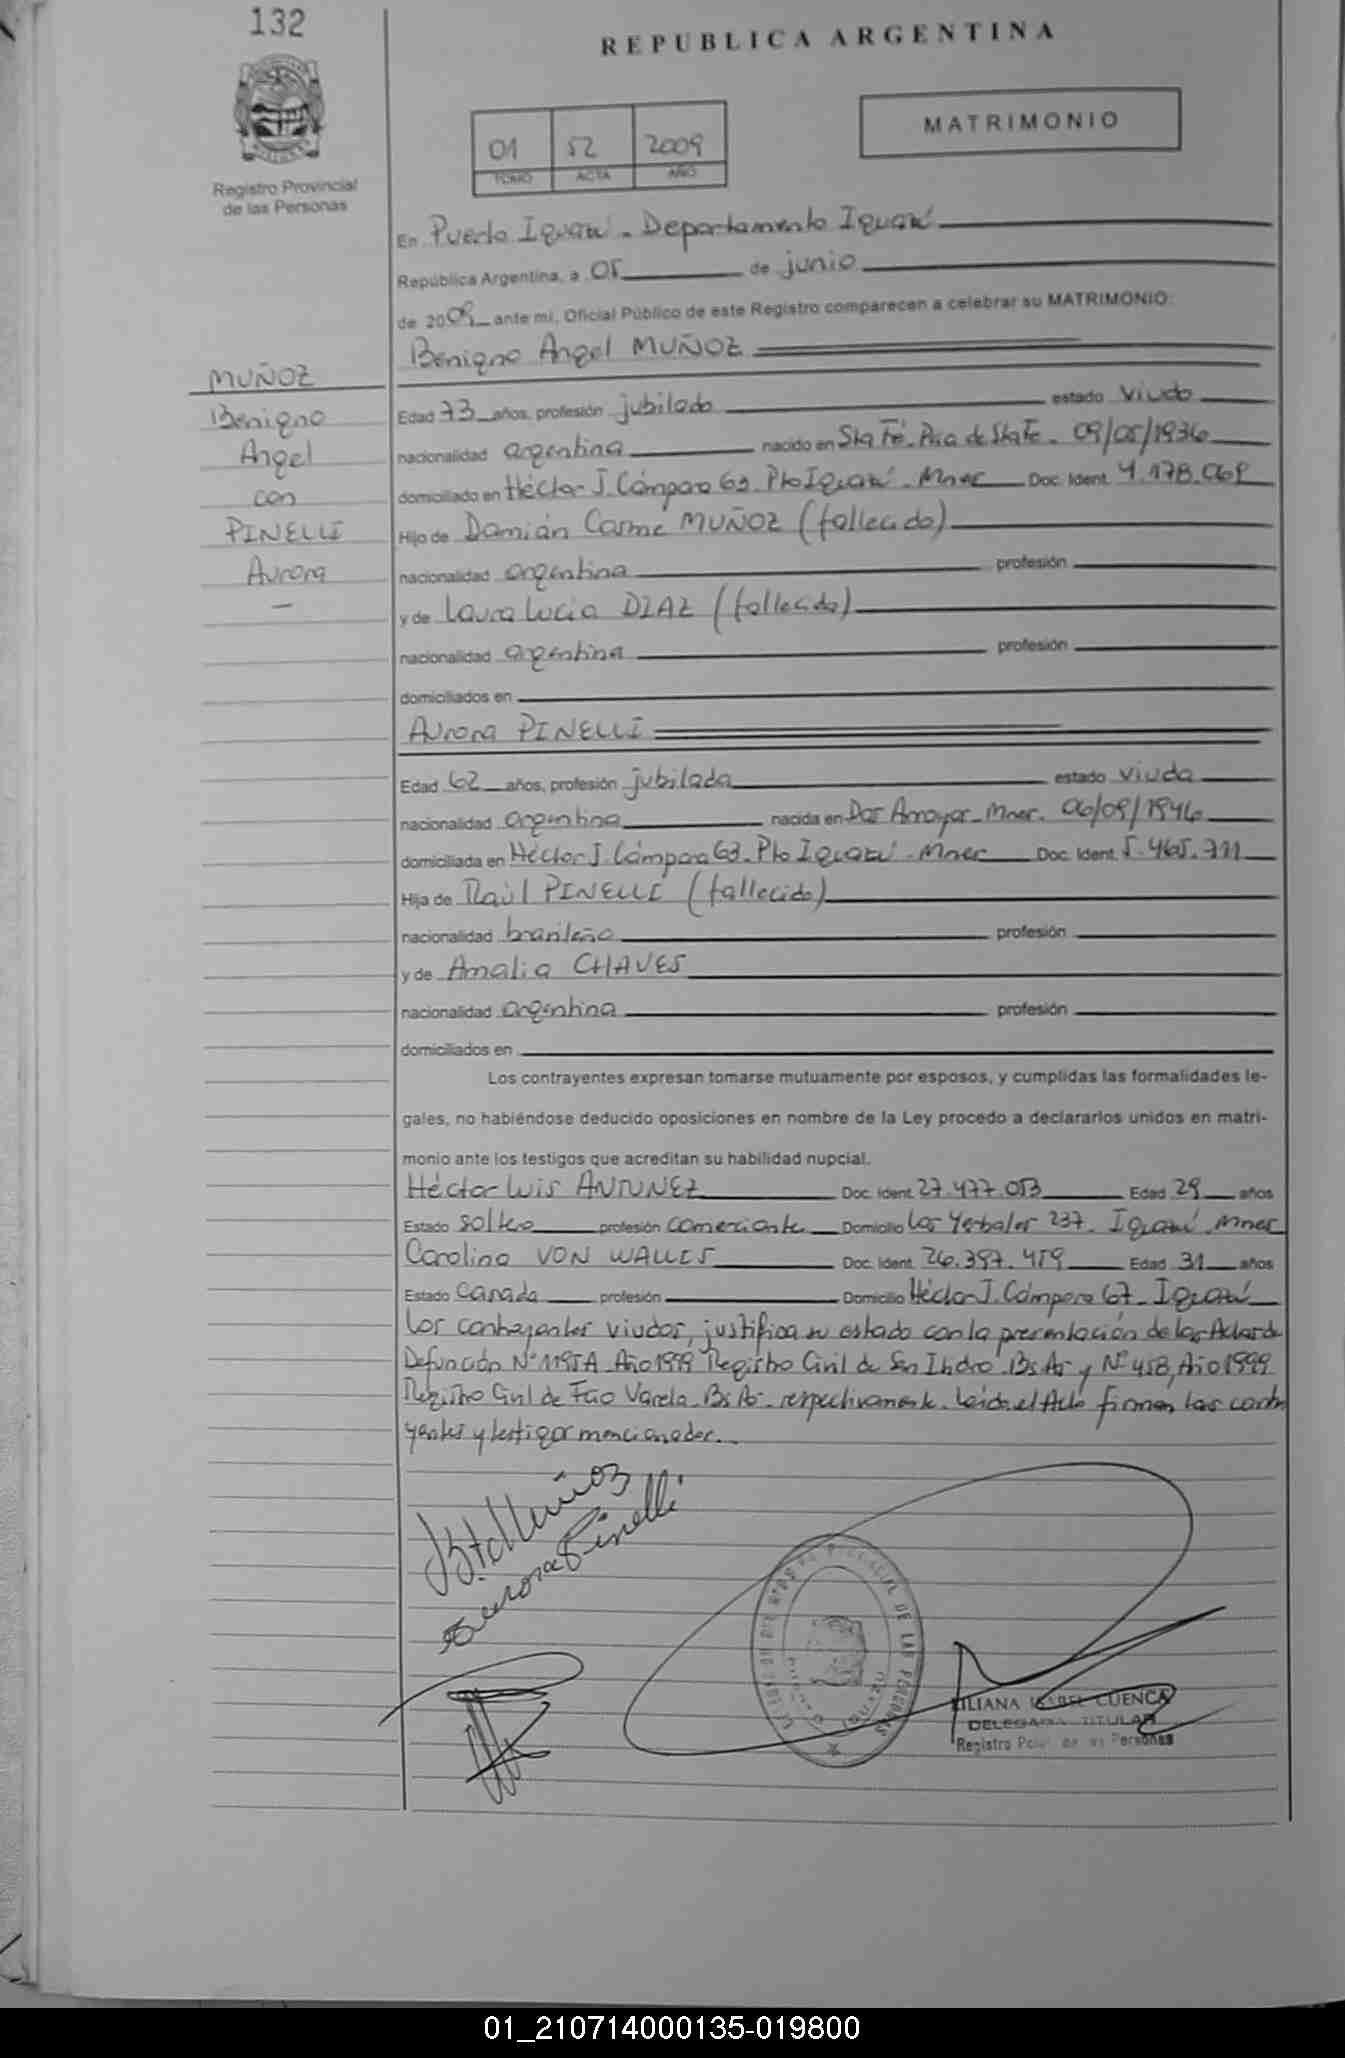 132
REPUBLICA ARGENTINA
Registro Provincial
de las Personas
01 52 2009
TOMO ACTA AÑO
MATRIMONIO
En Puerto Iguazú - Departamento Iguazú
República Argentina, a 05 de junio
de 2009 ante mi, Oficial Público de este Registro comparecen a celebrar su MATRIMONIO:
Benigno Angel MUÑOZ
MUÑOZ
Benigno
Angel
con
PINELLI
Aurora
Edad 73 años, profesión jubilado estado viudo
nacionalidad argentina nacido en Sta Fé - Pcia de Sta Fe - 09/05/1936
domiciliado en Héctor J. Cámpora 63 - Pto Iguazú - Mnes Doc. Ident. 4.178.069
Hijo de Damián Cosme MUÑOZ (fallecido)
nacionalidad argentina profesión
y de Laura Lucia DIAZ (fallecida)
nacionalidad argentina profesión
domiciliados en
Aurora PINELLI
Edad 62 años, profesión jubilada estado viuda
nacionalidad argentina nacida en Dos Arroyos - Mnes - 06/09/1946
domiciliada en Héctor J. Cámpora 63 - Pto Iguazú - Mnes Doc. Ident. 5.465.711
Hija de Raúl PINELLI (fallecido)
nacionalidad brasileño profesión
y de Amalia CHAVES
nacionalidad argentina profesión
domiciliados en
Los contrayentes expresan tomarse mutuamente por esposos, y cumplidas las formalidades le-
gales, no habiéndose deducido oposiciones en nombre de la Ley procedo a declararlos unidos en matri-
monio ante los testigos que acreditan su habilidad nupcial.
Héctor Luis ANTUNEZ Doc. Ident. 27.477.053 Edad 29 años
Estado soltero profesión comerciante Domicilio Los Yerbales 237 - Iguazú - Mnes
Carolina VON WALLIS Doc. Ident. 26.397.459 Edad 31 años
Estado Casada profesión Domicilio Héctor J. Cámpora 67 - Iguazú
Los contrayentes viudos, justifica su estado con la presentación de las Actas de
Defunción N° 1195A Año 1999 Registro Civil de San Isidro - Bs As - y N° 458, Año 1999
Registro Civil de Fcio Varela - Bs As - respectivamente. Leído el Acto firman los contra
yentes y testigos mencionados.
Muñoz
Aurora Pinelli
LILIANA ISABEL CUENCA
DELEGADA TITULAR
Registro Pcial de las Personas
01_210714000135-019800